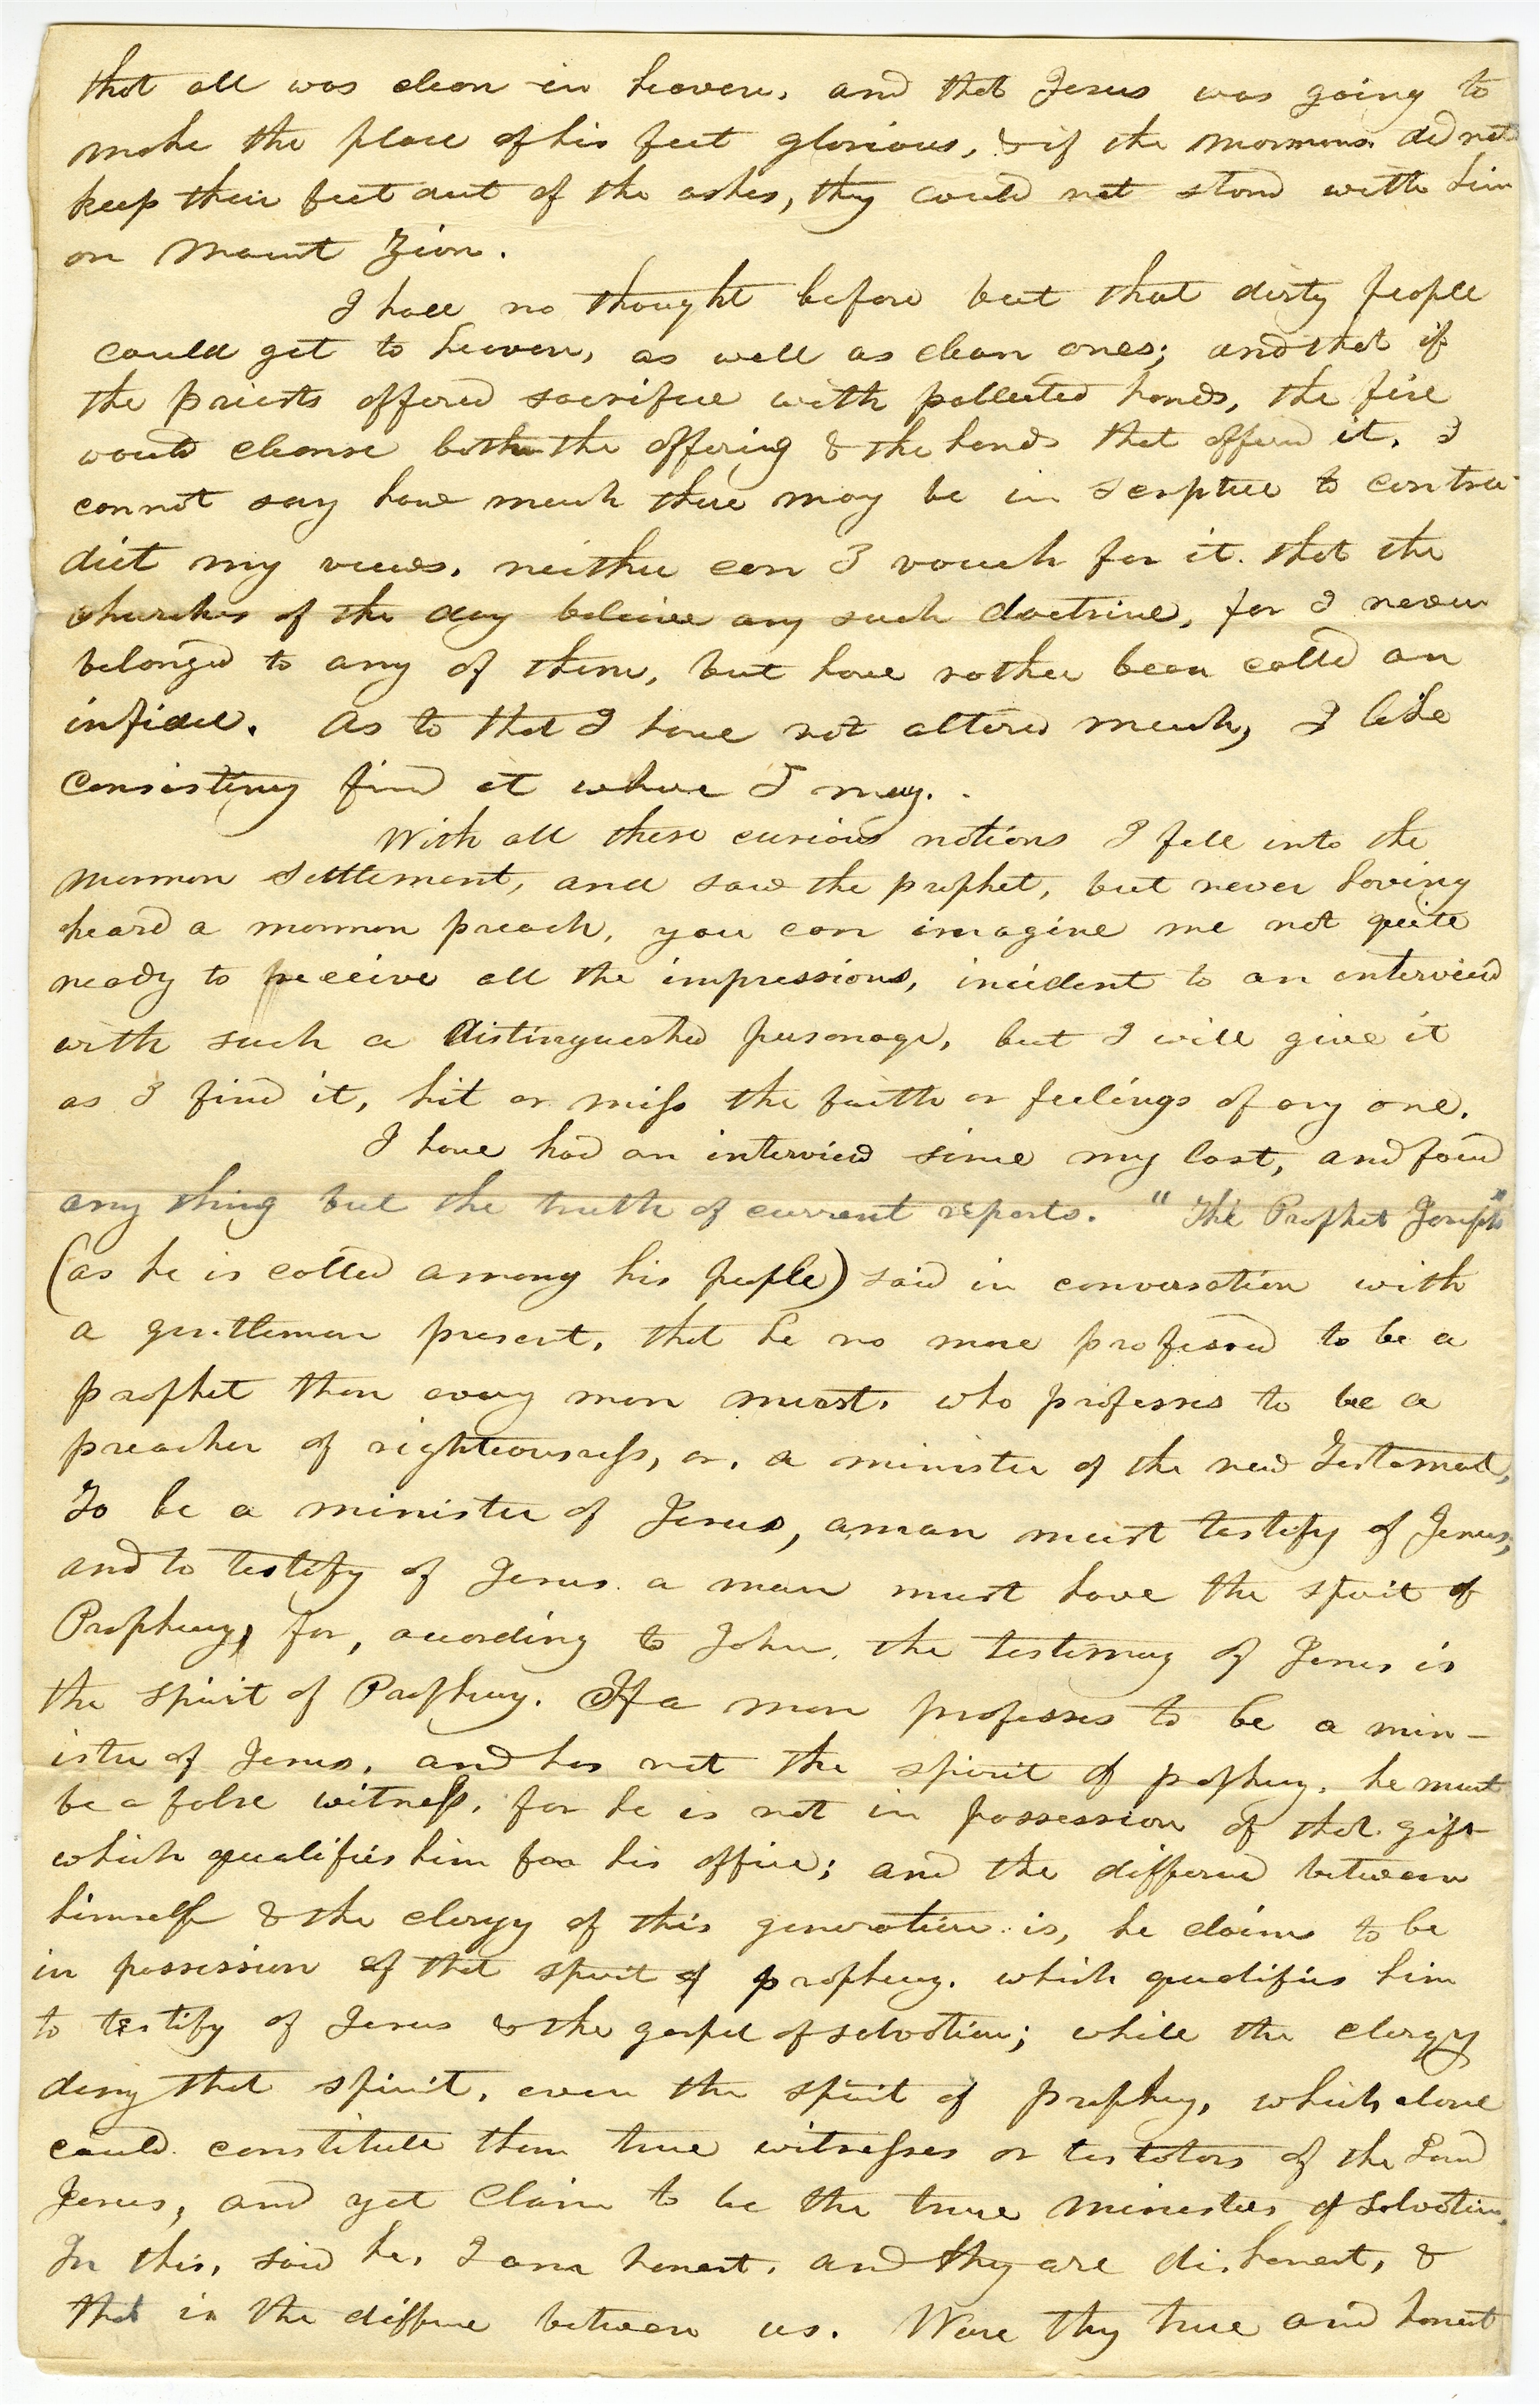 that all was clean in heaven, and that Jesus was going to
make the place of his feet glorious, & if the Mormons did not
keep their feet out of the ashes, they could not stand with him
on Mount Zion.
I had no thought before but that dirty people
could get to heaven, as well as clean ones; and that if
the priests offered sacrifice with polluted hands, the fire
would cleanse both the offering & the hands that offered it. I
cannot say how much there may be in scripture to contra-
dict my views, neither can I vouch for it. that the
churches of the day believe any such doctrine, for I never
belonged to any of them, but have rather been called an
infidel. As to that I have not altered much, I like
consistency find it where I may.
With all these curious notions I fell into the
Mormon settlement, and saw the prophet, but never having
heard a mormon preach, you can imagine me not quite
ready to receive all the impressions, incident to an interview
with such a distinguished personage, but I will give it
as I find it, hit or miss the faith or feelings of any one.
I have had an interview since my last, and found
any thing but the truth of current reports. "The Prophet Joseph"
(as he is called among his people) said in conversation with
a gentleman present, that he no more professed to be a
prophet than every man must, who professes to be a
preacher of righteousness, or, a minister of the new Testament,
To be a minister of Jesus, a man must testify of Jesus;
and to testify of Jesus a man must have the spirit of
Prophecy, for, according to John, the testimony of Jesus is
the spirit of Prophecy. If a man professes to be a min-
ister of Jesus, and has not the spirit of prophecy, he must
be a false witness, for he is not in possession of that gift
which qualifies him for his office; and the difference between
himself & the clergy of this generation is, he claims to be
in possession of that spirit of prophecy, which qualifies him
to testify of Jesus & the gospel of salvation; while the clergy
deny that spirit, even the spirit of prophecy, which alone
could constitute them true witnesses or testators of the Lord
Jesus, and yet claim to be the true ministers of salvation.
In this, said he, I am honest, and they are dishonest, &
that is the difference between us. Were they true and honest